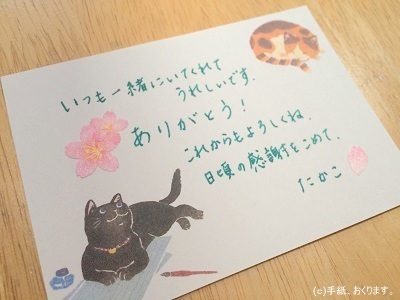 いつも一緒にいてくれて
うれしいです。
ありがとう！
これからもよろしくね。
日頃の感謝をこめて、
たかこ
(c)手紙、おくります。